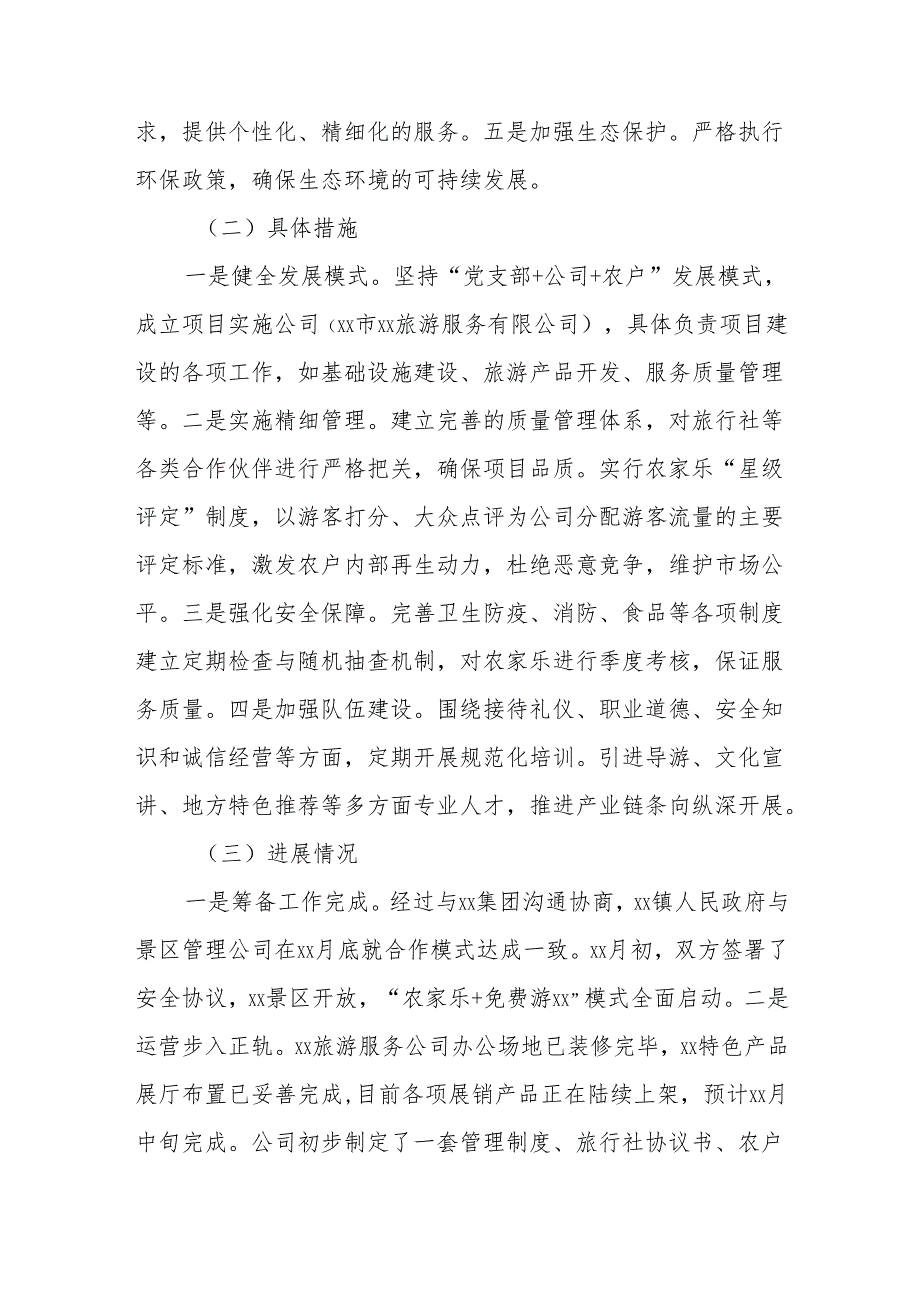 求，提供个性化、精细化的服务。五是加强生态保护。严格执行
环保政策，确保生态环境的可持续发展。
（二）具体措施
一是健全发展模式。坚持“党支部+公司+农户”发展模式，
成立项目实施公司（xx市xx旅游服务有限公司），具体负责项目建
设的各项工作，如基础设施建设、旅游产品开发、服务质量管理
等。二是实施精细管理。建立完善的质量管理体系，对旅行社等
各类合作伙伴进行严格把关，确保项目品质。实行农家乐“星级
评定”制度，以游客打分、大众点评为公司分配游客流量的主要
评定标准，激发农户内部再生动力，杜绝恶意竞争，维护市场公
平。三是强化安全保障。完善卫生防疫、消防、食品等各项制度
建立定期检查与随机抽查机制，对农家乐进行季度考核，保证服
务质量。四是加强队伍建设。围绕接待礼仪、职业道德、安全知
识和诚信经营等方面，定期开展规范化培训。引进导游、文化宣
讲、地方特色推荐等多方面专业人才，推进产业链条向纵深开展。
（三）进展情况
一是筹备工作完成。经过与xx集团沟通协商，xx镇人民政府与
景区管理公司在xx月底就合作模式达成一致。xx月初，双方签署了
安全协议，xx景区开放，“农家乐+免费游xx”模式全面启动。二是
运营步入正轨。xx旅游服务公司办公场地已装修完毕，xx特色产品
展厅布置已妥善完成,目前各项展销产品正在陆续上架，预计xx月
中旬完成。公司初步制定了一套管理制度、旅行社协议书、农户